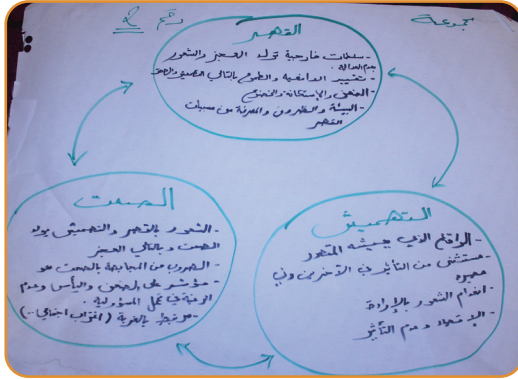 مجموعة
رقم 2
القهر
- سلطات خارجية تولد العجز والشعور
بعدم العدالة.
- تغيير الدافعية والطموح بالتالي التهميش والصمت
- الضعف والإستكانة والخضوع
- البيئة والظروف والمعرفة من مسببات
القهر
الصمت
- الشعور بالقهر والتهميش يولد
الصمت وبالتالي العجز
- الهروب من المجابهة بالصمت هو
مؤشر على الضعف واليأس وعدم
الرغبة في تحمل المسؤولية.
- مرتبط بالغربة (اغتراب اجتماعي..)
التهميش
- الواقع الذي يعيشه المقهور
- مستثنى من التأثير في الآخرين وفي
مصيره
- انعدام الشعور بالإرادة
- الإقصاء وعدم التأثير